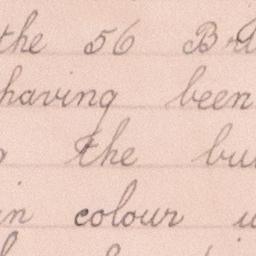 the 56
having been
the
in colour